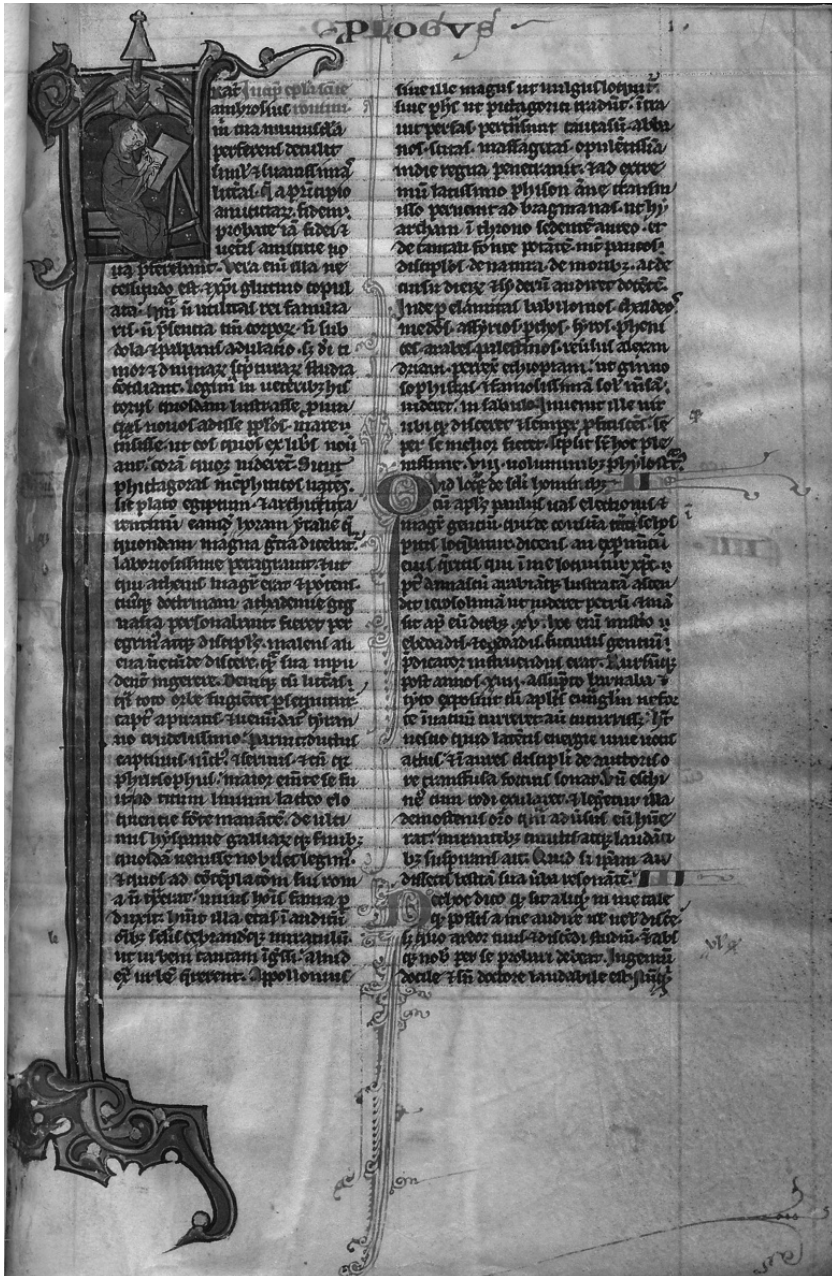 PLOGVS
rat̄ Incip̄ ep̄la sc̄i ie
ambrosius ronimi
m̄ tua munuscl̄a
perferens detulit
simĺ & suauissimas
litt̄as. q̄ a p̄ncipio
amicitiaꝝ. fidem.
probate iā fidei &
uet̄is amicitie no
ua p̄ferebant. Vera eni illa ne
cessitudo est. & xp̄i glutino copul
ata. quā n̄ utilitas rei familia
ris. n̄ p̄sentia tm̄ corpoꝝ. n̄ sub
dola & palpans adulatio. sꝫ di ti
mor & diuinaꝝ sc̄pturaꝝ studia
cōciliant. Legim̄ in uet̄ibꝫ his
toriis quosdam lustrasse prouin
cias nouos adisse pplos. mare t̄
nsisse. ut eos quos ex libris nou̅
ant. corā quoqꝫ uiderēt. Sicut
phittagoras memphiticos uates.
sic plato egiptum. & architā ta
rentinū eandē horam ytalie q̄
quondam magna gr̄cia dicebat̄.
laboriosissime peragrauit. & ut
qui athenis magr̄ erat & potens.
cuiꝰqꝫ doctrinam achademie gig
nasia personabant. fieret per
egrinꝰ atqꝫ discipl̄s. malens ali
ena ūecūde discere. q̄ sua inpu
dent̄ ingerere. Deniqꝫ cū litt̄as.
q̄si toto orbe fugientes p̄sequitur
capt̄ a piratis & uenūdat̄. tyran
no crudelissimo paruit ductus
captiuus uinct̄ & seruus. & tn̄ qꝫ
philosophus. maior ementē se fu
it. ad titum liuium lacteo elo
quencie fōte manātē. de ulti
mis hyspanie galliaꝝ qꝫ finibꝫ
quosdā uenisse nobiles legim̄.
& quos ad cōtēplac̄om sui rom
a n̄ t̄xerat. unius hoīs fama p
duxit. habuit illa etas īauditū
oībꝫ sclīs celebrandūqꝫ miraculū.
ut urbem tantam īgressi. aliud
ext̄ urbē q̄rerent. Appollonius
siue ille magus ut uulgus loquit̄.
siue phs ut pictagorici tradūt. ītra
uit persas. pertransiuit caucasū. alba
nos. scitas. massagetas. opulētissīa
indie regna penetrauit. & ad extre
mū latissimo phison āne transm
isso peruenit ad bragmanas. ut hy
archam ī throno sedentē aureo. et
de tantali fonte potātē. int̄ paucos
discipl̄os. de natura. de moribꝫ. ac de
cursu dieꝝ. & syderū audiret docētē.
Inde p elamitas babilonios. chaldeos.
medos. assyrios. p̄thos. syros. pheni
ces. arabes. palestinos. reūsus alexan
driam. perrexit ethiopiam. ut gimno
sophistas. & famosissimā solis m̄sā.
uideret. in sabulo. Inuenit ille uir
ubiqꝫ quod disceret. & semper p̄ficiēs. se
per se melior fieret. scpsit sr̄ hoc ple
nissime. viij. uoluminibꝫ phylostrat̄.
Quid loq̄r de sc̄li hominibꝫ II
cū apl̄s paulus uas electionis &
magr̄ gentiū. qui de conscīa tāti ī se hos
pitis loq̄batur. dicens. an exp̄im̄tū
eius q̄ritis qui ī me loquitur xp̄c. p
ꝰt damascū arabiāqꝫ lustratā. ascen
dit ierosolimā ut uideret petrū. & mā
sit ap̄ eū diebꝫ. xv. hoc eni mistio
ebdoadis. & ogdoadis. futurus gentiū
p̄dicator instruendus erat. Rursūqꝫ
post annos. xiiii. assūpto barnaba &
tyto. exposuit cū apl̄is euuglm̄ ne for
te ī uacuū curreret aut cucurriss. Ht̄
nescio quid latentis energie uiue uocis
actus. & ī aures discipli de auctoris o
re transfusa fortius sonat. Vn̄ eschi
nes cum rodi exularet. & legeret̄ illa
demostenis or̄o quā ad ūsus eū habue
rat. mirantibꝫ cunctis atqꝫ laudāti
bꝫ suspirans ait. Quid si ip̄am au
dissetis bestiā sua ūba resonātē. III
Nec hoc dico qꝫ sit aliqꝫ in me tale
qꝫ possis a me audire uel uelis disce
sꝫ quo ardor tuus & discēdi studiū. & abs
qꝫ nob̄ per se probari debeat. Ingenium
docile & sn̄ doctore laudabile est. Nōqꝫ